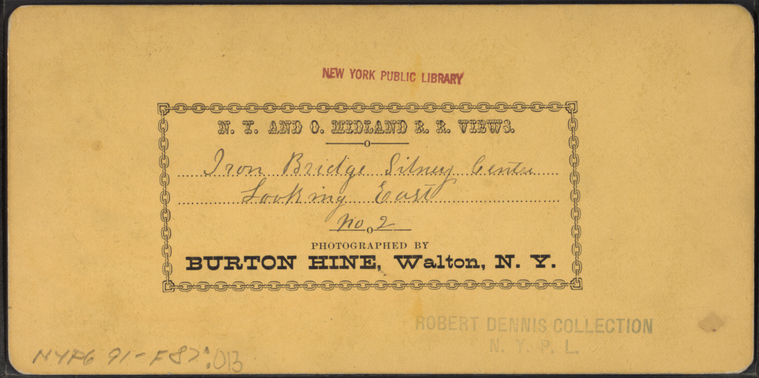 NEW YORK PUBLIC LIBRARY
N. Y. AND O. MIDLAND R. R. VIEWS.
Iron Bridge Sidney Centre
Looking East
No. 2
PHOTOGRAPHED BY
BURTON HINE, Walton, N. Y.
ROBERT DENNIS COLLECTION
N. Y. P. L.
NYPG 91-F87:013